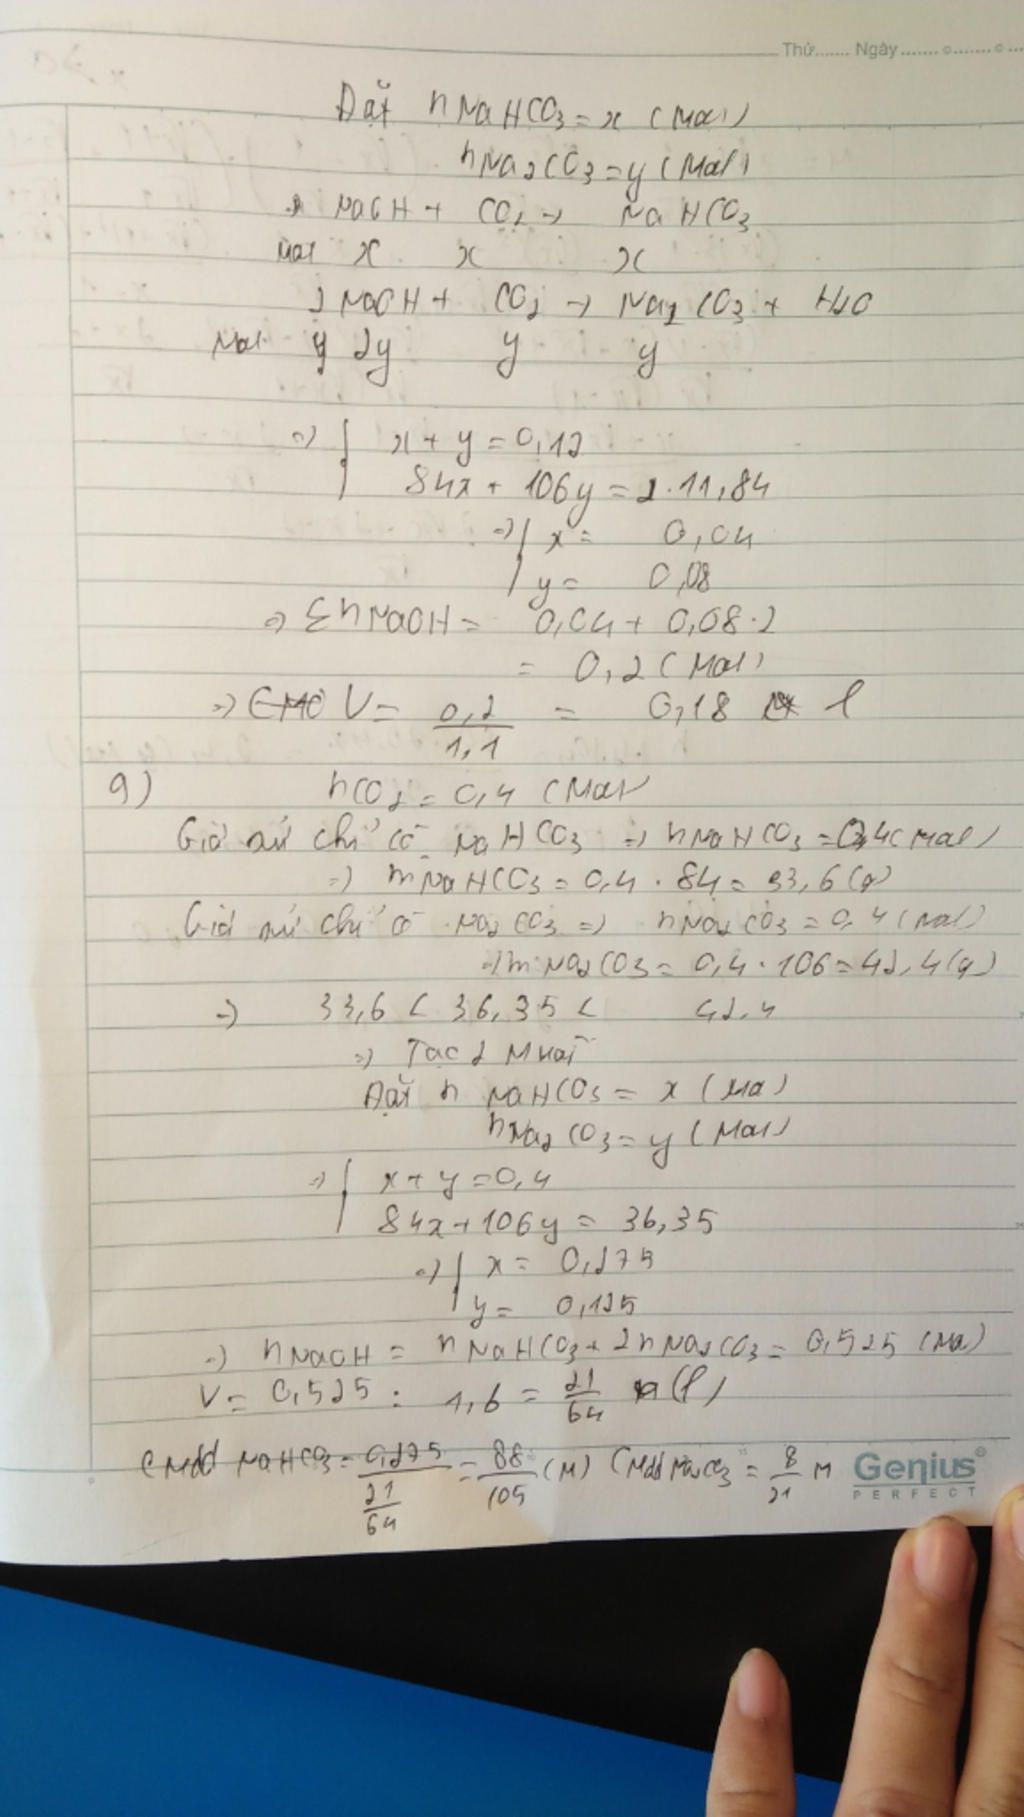 Thứ....... Ngày....... o....... o...
Đặt nNaHCO3 = x (mol)
nNa2CO3 = y (mol)
NaOH + CO2 → NaHCO3
mol x x x
2NaOH + CO2 → Na2CO3 + H2O
mol 2y y y
=> { x + y = 0,12
84x + 106y = 11,84
=> { x = 0,04
y = 0,08
=> ΣnNaOH = 0,04 + 0,08.2
= 0,2 (mol)
=> V = 0,2/1,1 = 0,18 l
9) nCO2 = 0,4 (mol)
Giả sử chỉ có NaHCO3 => nNaHCO3 = 0,4 (mol)
=> mNaHCO3 = 0,4 . 84 = 33,6 (g)
Giả sử chỉ có Na2CO3 => nNa2CO3 = 0,4 (mol)
=> mNa2CO3 = 0,4 . 106 = 42,4 (g)
=> 33,6 < 36,35 < 42,4
=> Tạo 2 muối
Đặt nNaHCO3 = x (mol)
nNa2CO3 = y (mol)
=> { x + y = 0,4
84x + 106y = 36,35
=> { x = 0,275
y = 0,125
=> nNaOH = nNaHCO3 + 2nNa2CO3 = 0,525 (mol)
V = 0,525 : 1,6 = 21/64 (l)
CMdd NaHCO3 = 0,275/(21/64) = 88/105 (M) CMdd Na2CO3 = 8/21 M
Genius
PERFECT